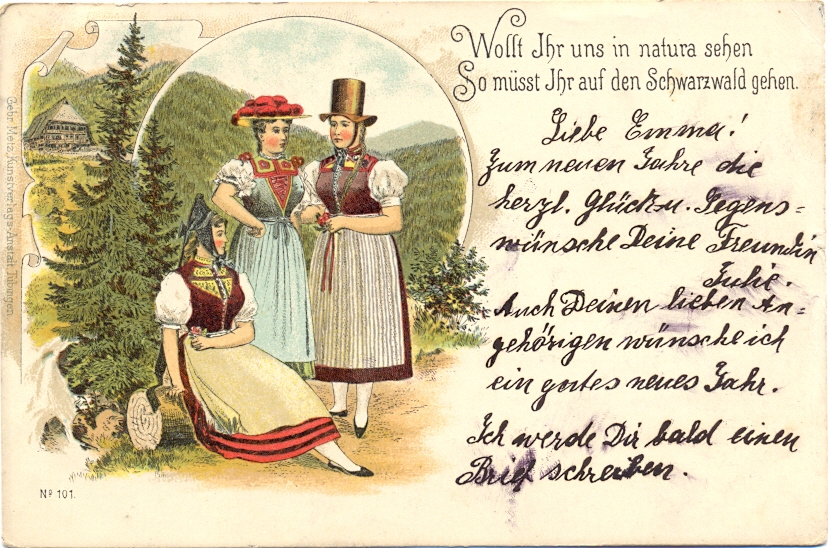 Wollt Ihr uns in natura sehen
So müsst Ihr auf den Schwarzwald gehen.
Liebe Emma!
Zum neuen Jahre die
herzl. Glück u. Segens=
wünsche Deine Freundin
Julie.
Auch Deinen lieben An=
gehörigen wünsche ich
ein gutes neues Jahr.
Ich werde Dir bald einen
Brief schreiben.
Gebr. Metz, Kunstverlags-Anstalt, Tübingen.
Nº 101.